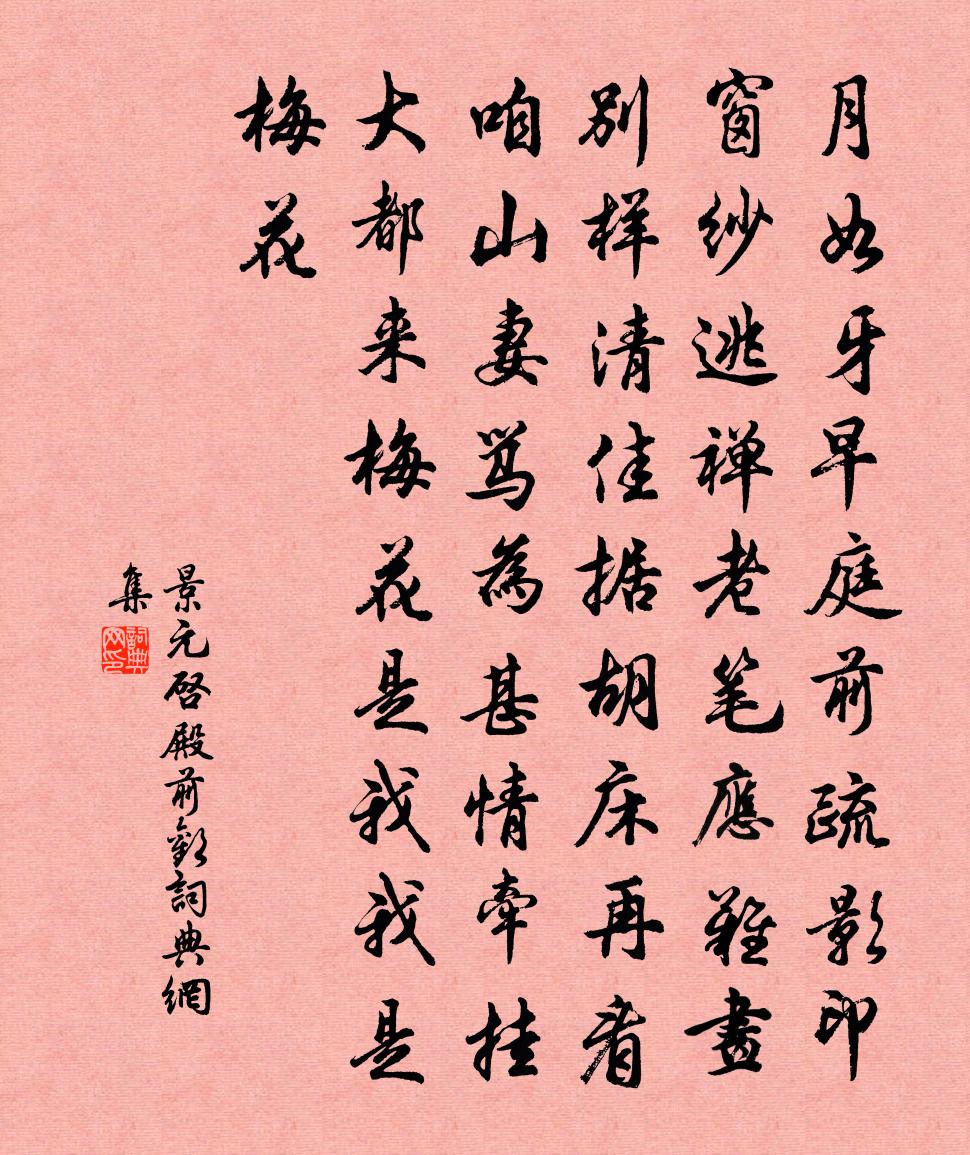 月如牙早庭前疏影印
窗纱逃禅老笔應難畫
别样清佳据胡床再看
咱山妻骂為甚情牽挂
大都来梅花是我我是
梅花
景元啓殿前歡詞典網
集
詞典网印